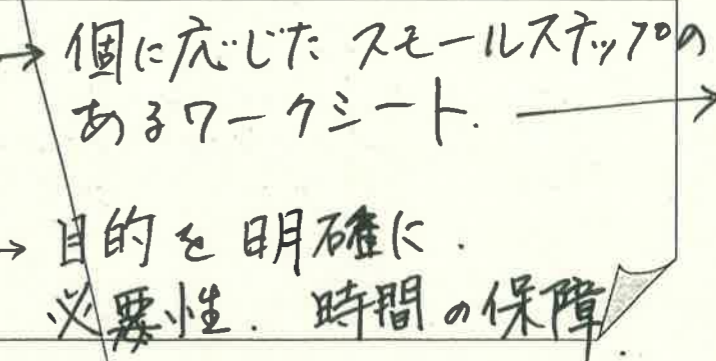 → 個に応じた スモールステップの
あるワークシート. →
→ 目的を明確に.
必要性. 時間の保障